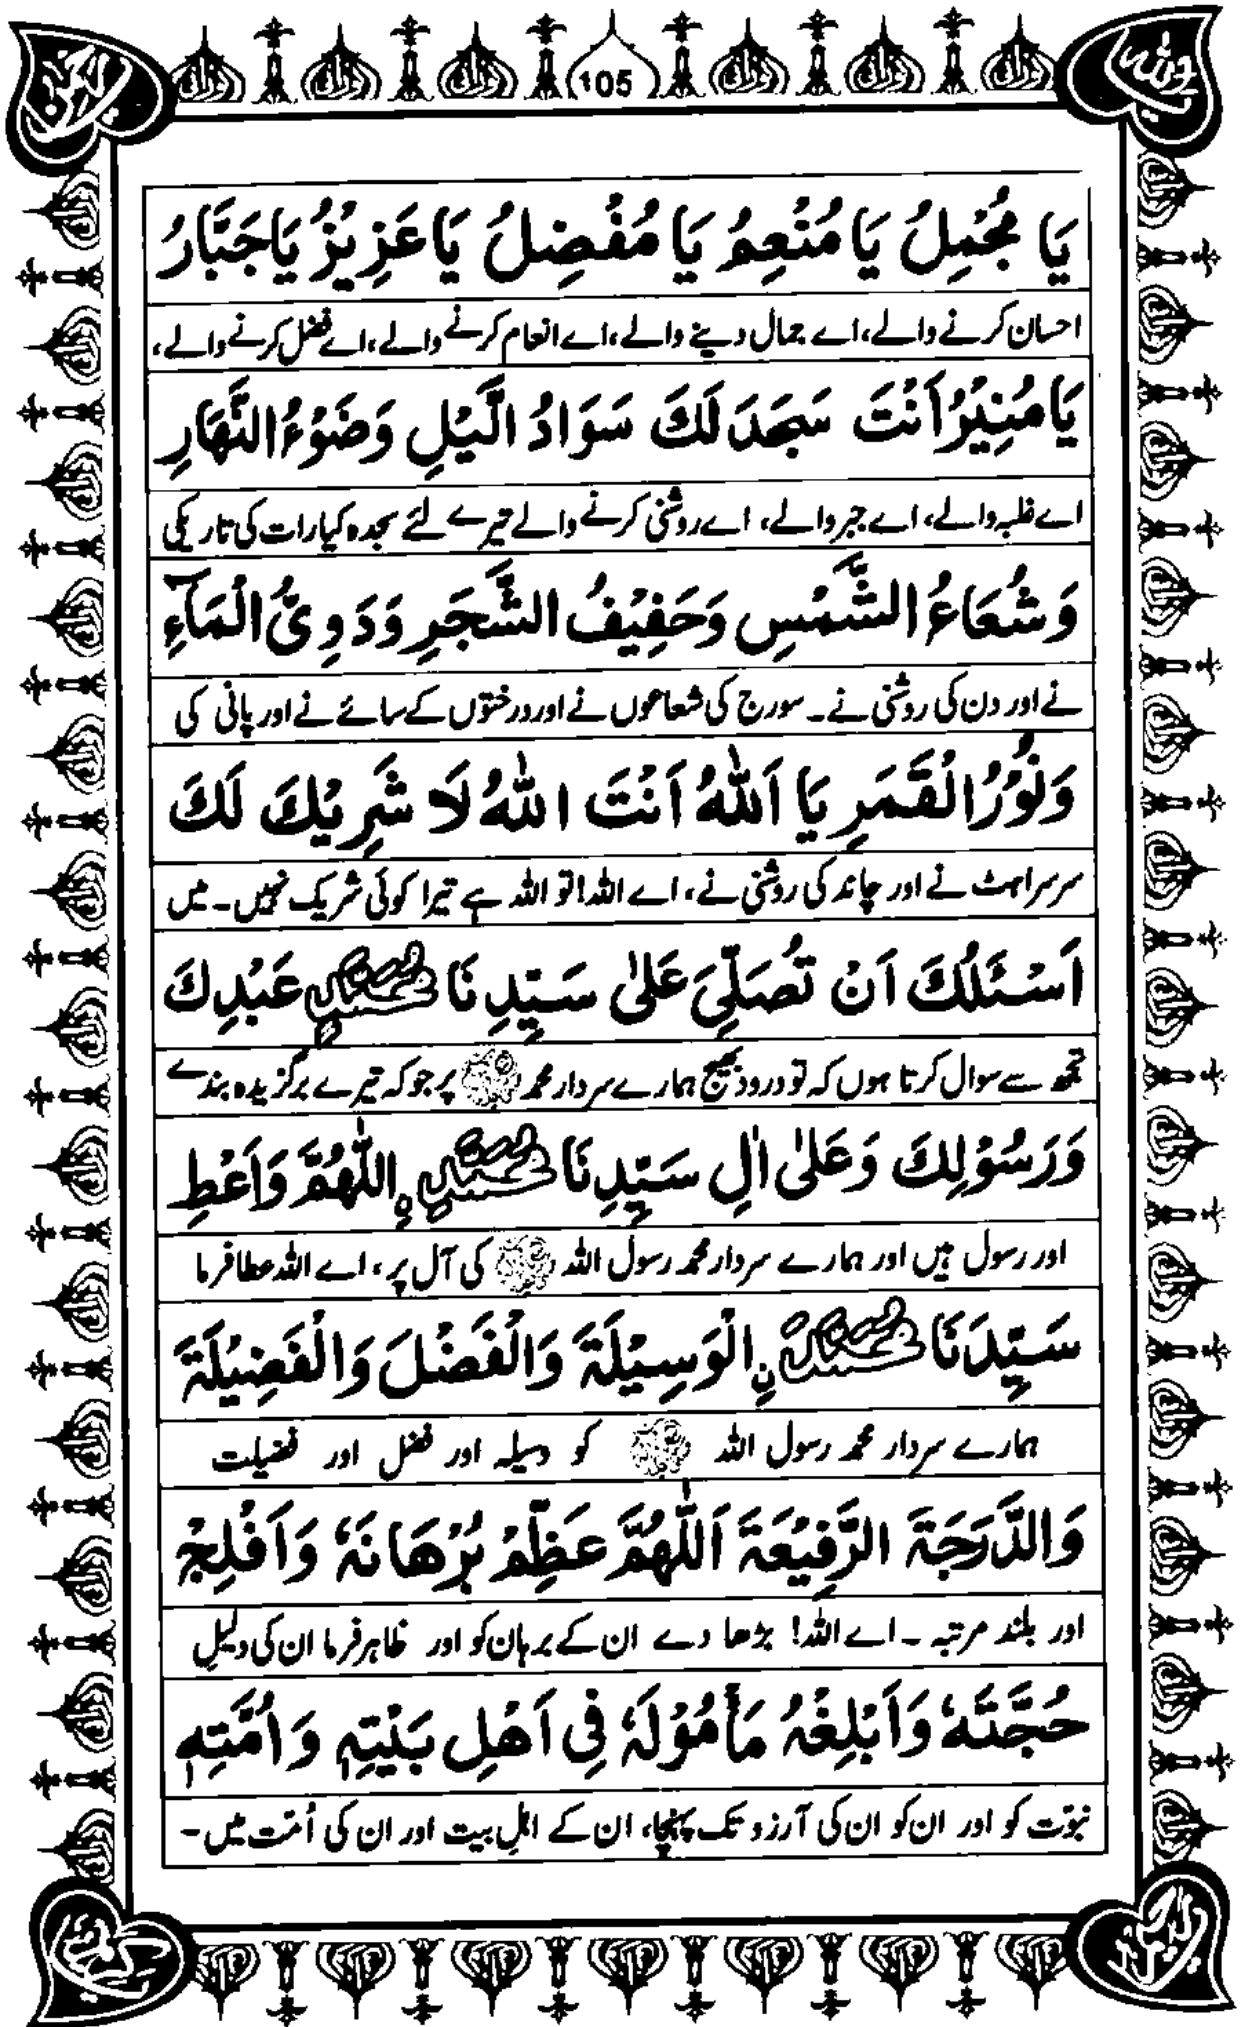 105
يَا مُجْمِلُ يَا مُنْعِمُ يَا مُفْضِلُ يَا عَزِيْزُ يَا جَبَّارُ
احسان کرنے والے، اے جمال دینے والے، اے انعام کرنے والے، اے فضل کرنے والے،
يَا مُنِيْرُ اَنْتَ سَجَدَ لَكَ سَوَادُ الَّيْلِ وَضَوْءُ النَّهَارِ
اے غلبہ والے، اے جبر والے، اے روشنی کرنے والے تیرے لئے سجدہ کیا رات کی تاریکی
وَشُعَاعُ الشَّمْسِ وَحَفِيْفُ الشَّجَرِ وَدَوِيُّ الْمَآءِ
نے اور دن کی روشنی نے۔ سورج کی شعاعوں نے اور درختوں کے سائے نے اور پانی کی
وَنُوْرُ الْقَمَرِ يَا اَللّٰهُ اَنْتَ اللّٰهُ لَا شَرِيْكَ لَكَ
سرسراہٹ نے اور چاند کی روشنی نے، اے اللہ! تو اللہ ہے تیرا کوئی شریک نہیں۔ میں
اَسْئَلُكَ اَنْ تُصَلِّيَ عَلٰى سَيِّدِنَا مُحَمَّدٍ عَبْدِكَ
تجھ سے سوال کرتا ہوں کہ تو درود بھیج ہمارے سردار محمد ﷺ پر جو کہ تیرے برگزیدہ بندے
وَرَسُوْلِكَ وَعَلٰى اٰلِ سَيِّدِنَا مُحَمَّدٍ اللّٰهُمَّ وَاَعْطِ
اور رسول ہیں اور ہمارے سردار محمد رسول اللہ ﷺ کی آل پر، اے اللہ عطا فرما
سَيِّدَنَا مُحَمَّدَ نِ الْوَسِيْلَةَ وَالْفَضْلَ وَالْفَضِيْلَةَ
ہمارے سردار محمد رسول اللہ ﷺ کو وسیلہ اور فضل اور فضیلت
وَالدَّرَجَةَ الرَّفِيْعَةَ اَللّٰهُمَّ عَظِّمْ بُرْهَانَهٗ وَاَفْلِجْ
اور بلند مرتبہ ۔ اے اللہ! بڑھا دے ان کے برہان کو اور ظاہر فرما ان کی دلیلِ
حُجَّتَهٗ وَاَبْلِغْهُ مَأْمُوْلَهٗ فِيْ اَهْلِ بَيْتِهٖ وَاُمَّتِهٖ
نبوّت کو اور ان کو ان کی آرزو تک پہنچا، ان کے اہلِ بیت اور ان کی اُمّت میں۔